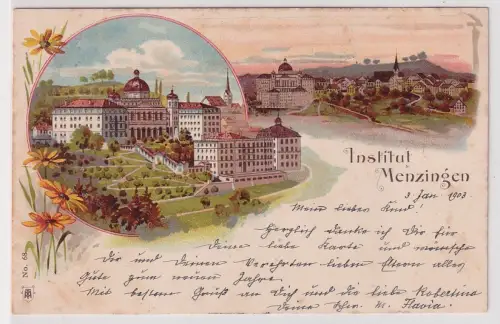 Institut
Menzingen
3 Jan 1903.
Mein liebes Kind!
Herzlich danke ich Dir für
deine liebe Karte und wünsche
Dir und Deinen Verehrten lieben Eltern alles
Gute zum neuen Jahre.
Mit bestem Gruß an Dich und die liebe Robertina
deine Schw. M. Flavia.
No. 68.